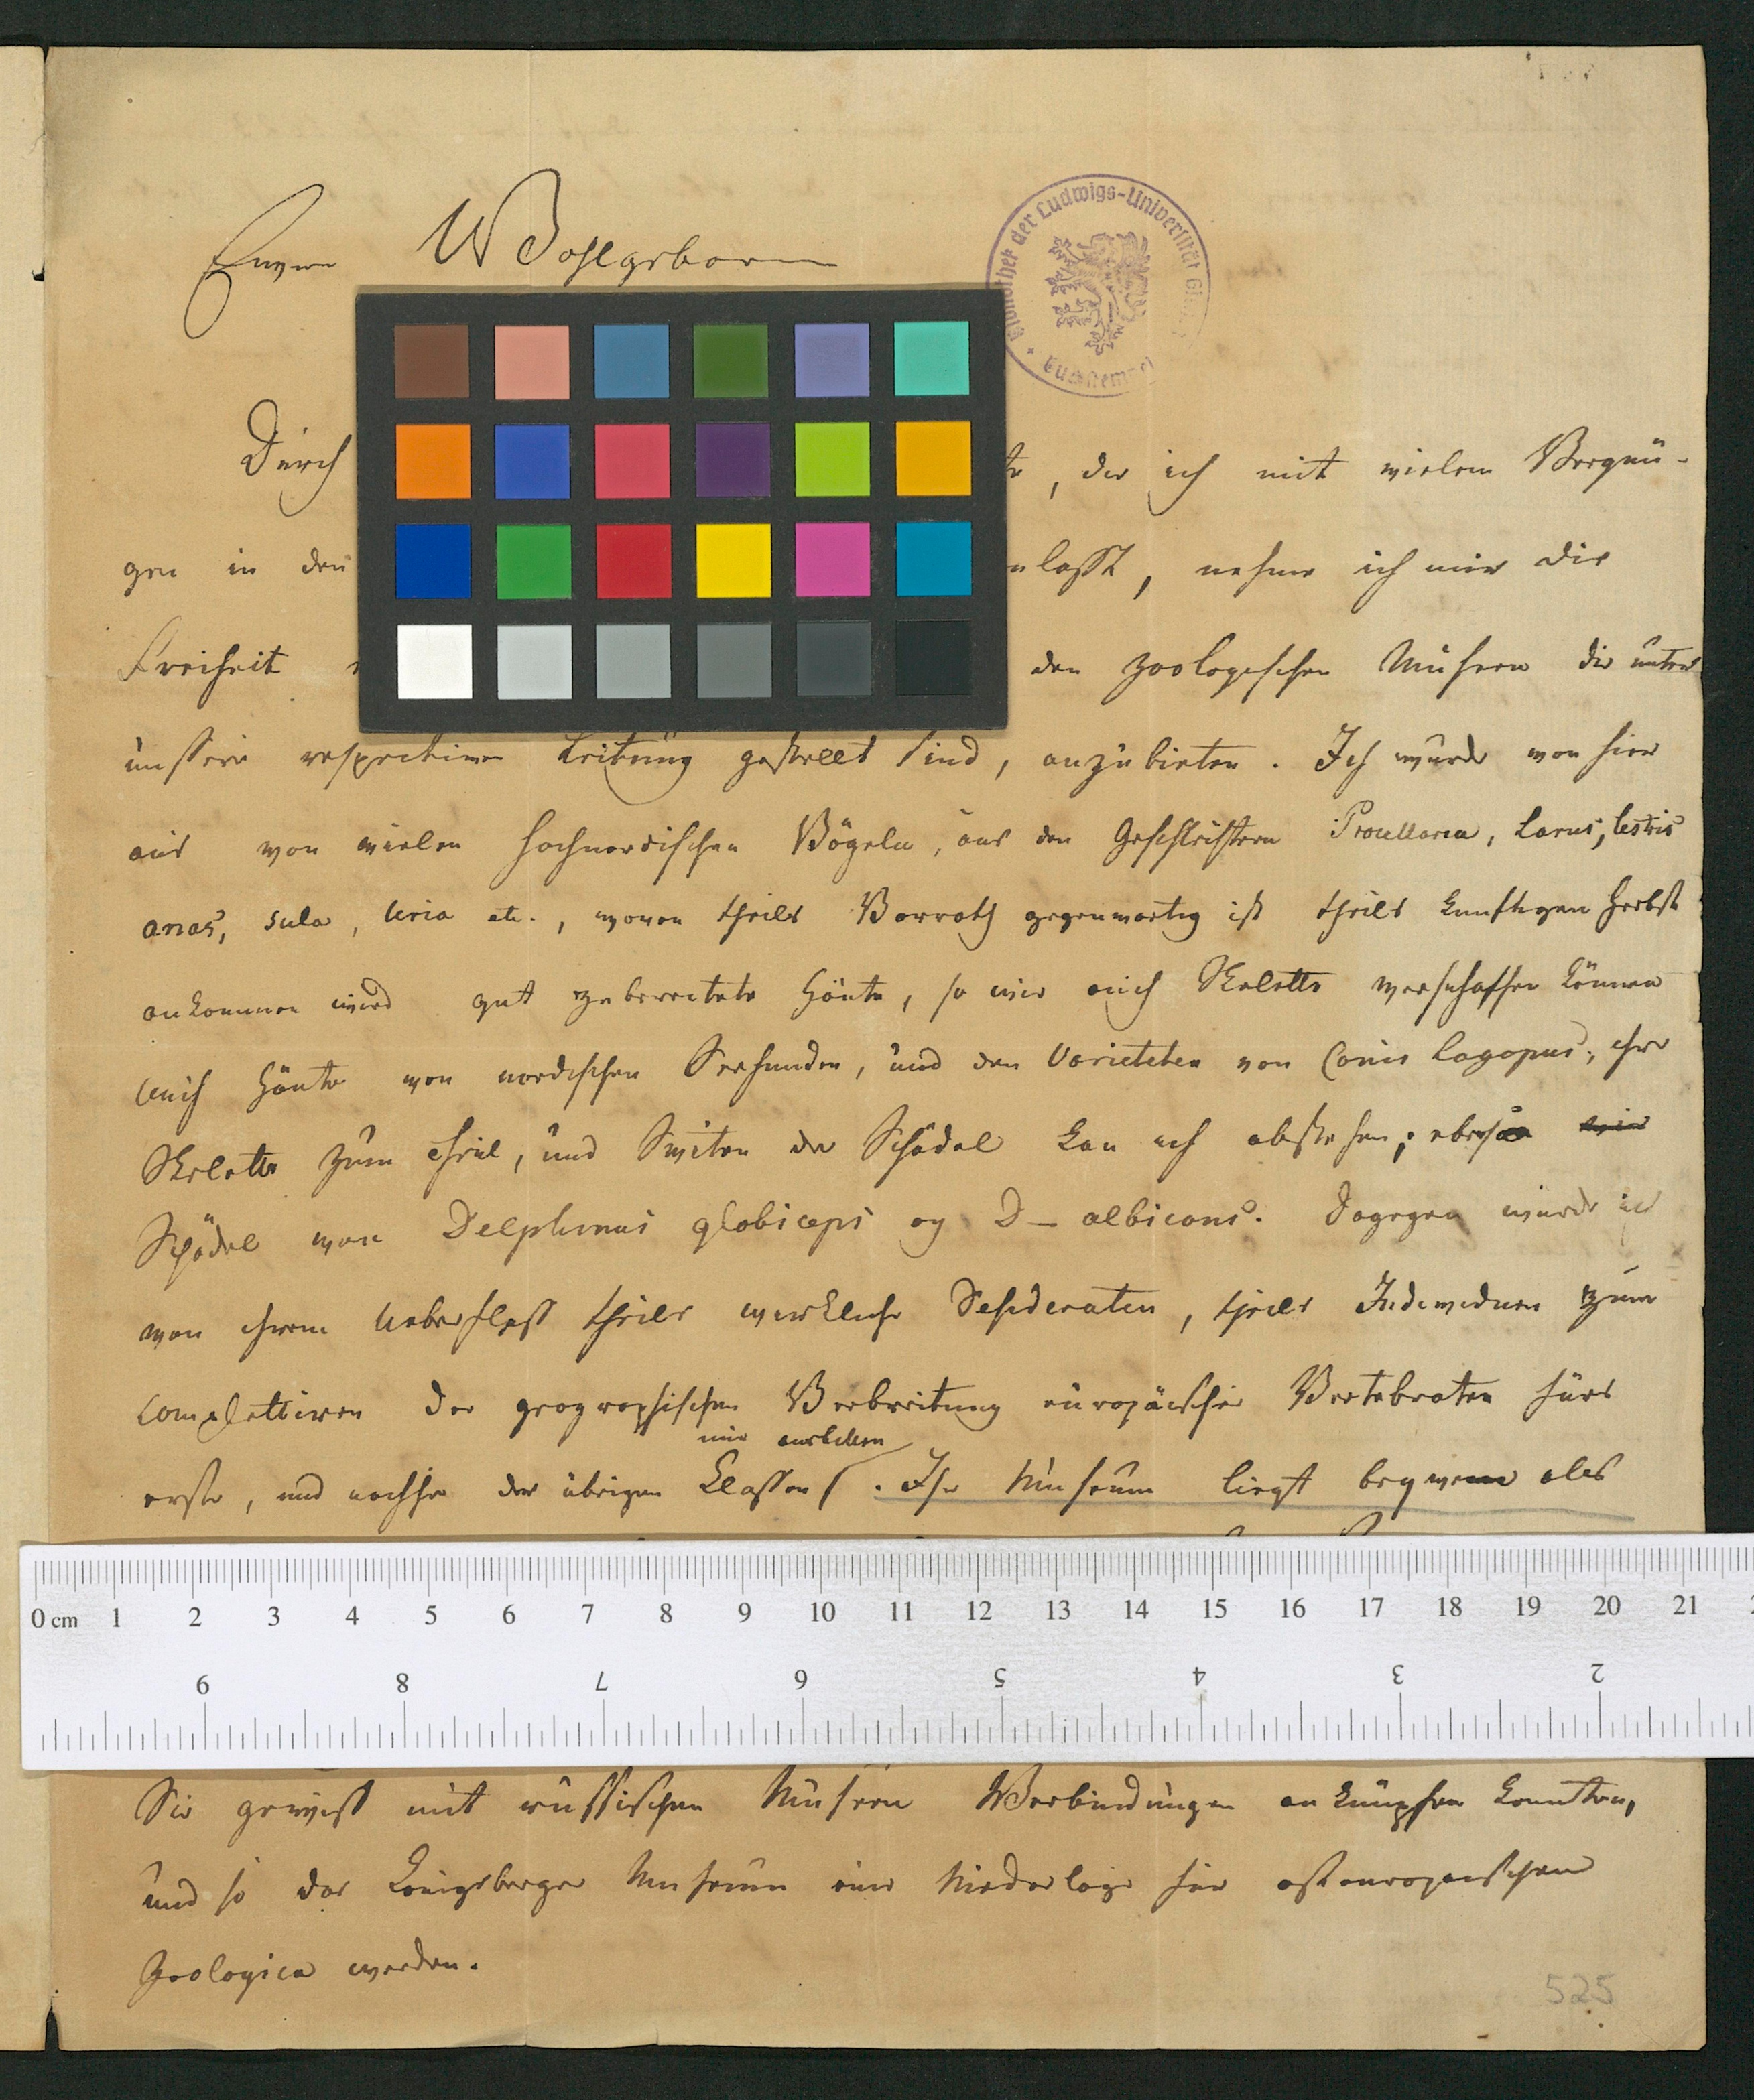 Euer WBohlgeboren
Bibliothek der Ludwigs-Universität Gießen
Durch , die ich mit vielem Vergnü-
gen in den nlaßt, nehme ich mir die
Freiheit den zoologischen Museen die unter
unsere respectiven Leitung gestellt sind, anzubieten. Ich wurde von hier
aus von vielen hochnordischen Vögeln, aus den Geschlechtern Procellaria, Larus, Lestris
anas, Sula, Uria etc., wovon theils Vorrath gegenwartig ist theils kunftigen Herbst
ankommen wird gut zubereitete Häute, so wie auch Skelette verschaffen können
Auch Häute von nordischen Seehunden, und den Varieteten von Canis lagopus, ihre
Skelette zum Theil, und Suiten der Schädel kan ich abstehen; ebenso
Schädel von Delphinus globiceps og D– albicans. Dagegen wurde ich
von ihrem Ueberfluss theils werkliche Desideraten, theils Individuen zum
complettiren der geographischen Verbreitung europäischer Vertebraten fürs
mir ausbitten
erste, und nachher der übrigen Klassen. Ihr Museum liegt beqwem als
0 cm 1 2 3 4 5 6 7 8 9 10 11 12 13 14 15 16 17 18 19 20 21
9 8 7 6 5 4 3 2
Sie gewiss mit russischen Museen Verbindungen anknüpfen konnten,
und so das Königsberger Museum eine Niederlage für osteuropeischen
Zoologica werden.
525